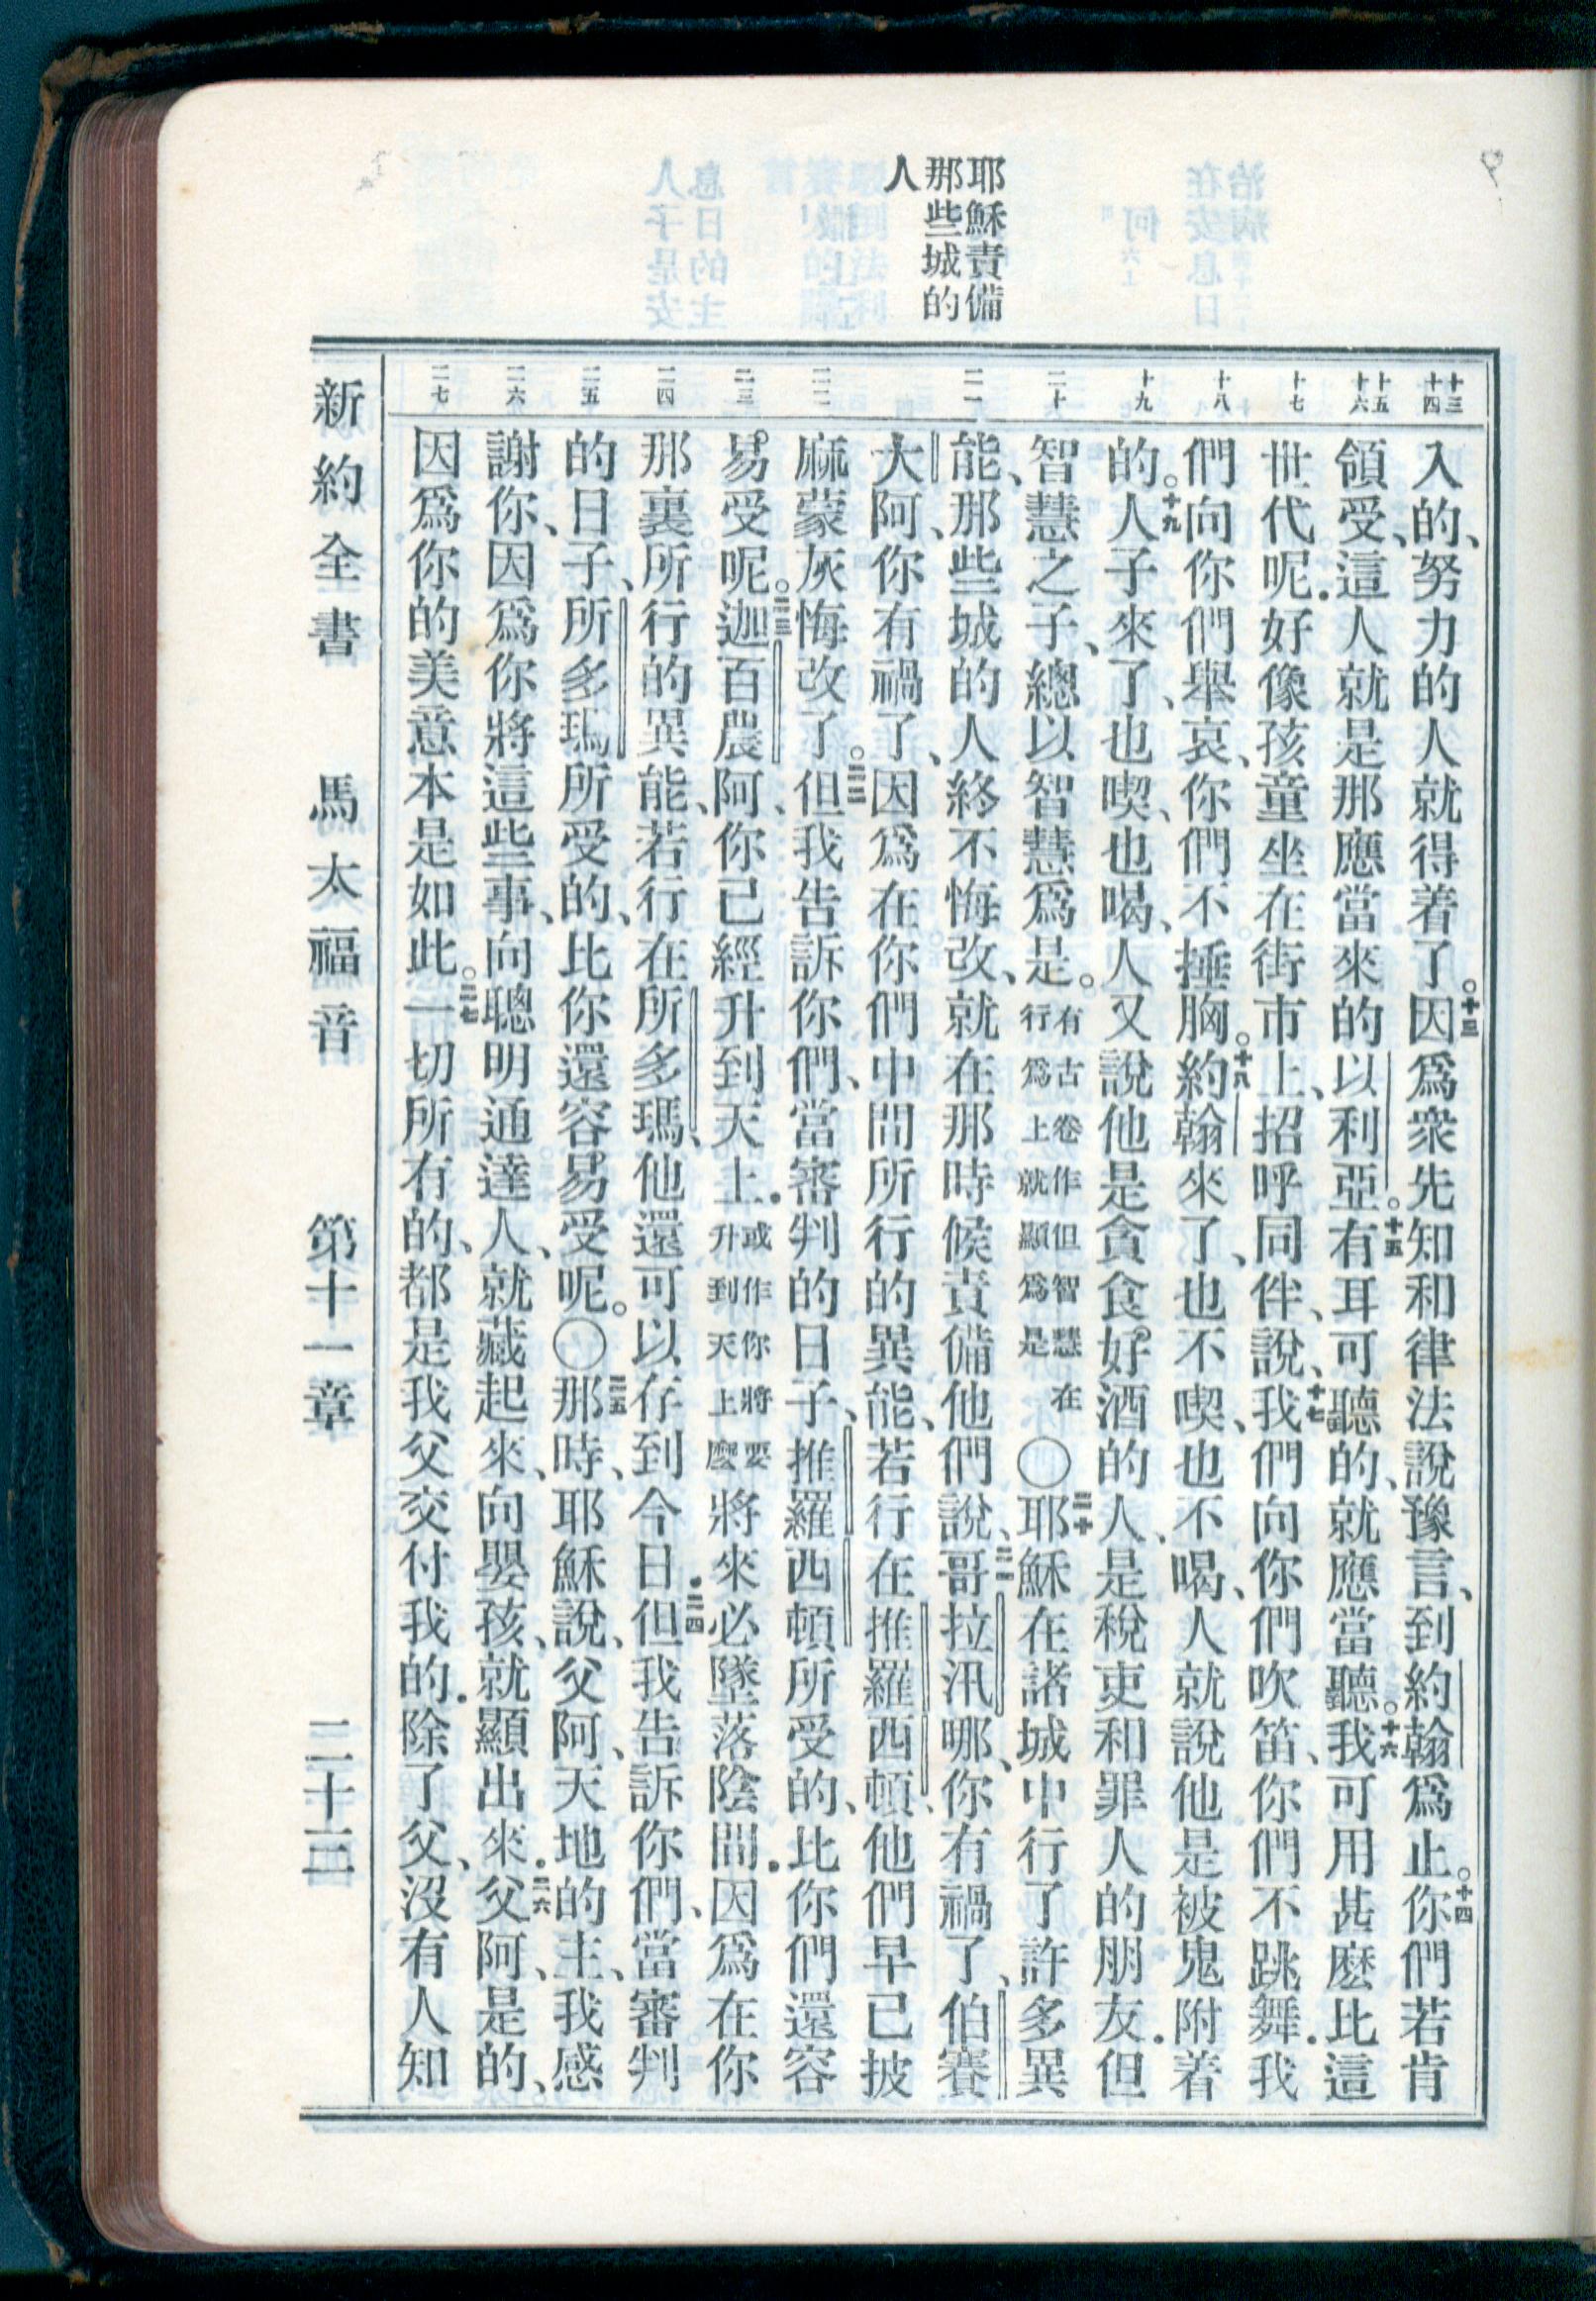 耶穌責備
那些城的
人
十三 十四
十五 十六
十七
十八
十九
二十
二一
二二
二三
二四
二五
二六
二七
入的、努力的人就得着了。十三因爲衆先知和律法說豫言、到約翰爲止。十四你們若肯
領受、這人就是那應當來的以利亞。十五有耳可聽的、就應當聽。十六我可用甚麽比這
世代呢．好像孩童坐在街市上、招呼同伴、說、十七我們向你們吹笛、你們不跳舞．我
們向你們舉哀、你們不捶胸。十八約翰來了、也不喫、也不喝、人就說他是被鬼附着
的。十九人子來了、也喫、也喝、人又說他是貪食好酒的人、是稅吏和罪人的朋友．但
智慧之子、總以智慧爲是。有古卷作但智慧在行爲上就顯爲是〇二十耶穌在諸城中行了許多異
能、那些城的人終不悔改、就在那時候責備他們說、二一哥拉汛哪、你有禍了、伯賽
大阿、你有禍了、因爲在你們中間所行的異能、若行在推羅西頓、他們早已披
麻蒙灰悔改了。二二但我告訴你們、當審判的日子、推羅西頓所受的、比你們還容
易受呢。二三迦百農阿、你已經升到天上．或作你將要升到天上麽將來必墜落陰間．因爲在你
那裏所行的異能、若行在所多瑪、他還可以存到今日．二四但我告訴你們、當審判
的日子、所多瑪所受的、比你還容易受呢。〇二五那時、耶穌說、父阿、天地的主、我感
謝你、因爲你將這些事、向聰明通達人、就藏起來、向嬰孩、就顯出來．二六父阿、是的、
因爲你的美意本是如此。二七一切所有的、都是我父交付我的．除了父、沒有人知
新約全書 馬太福音 第十一章 二十三